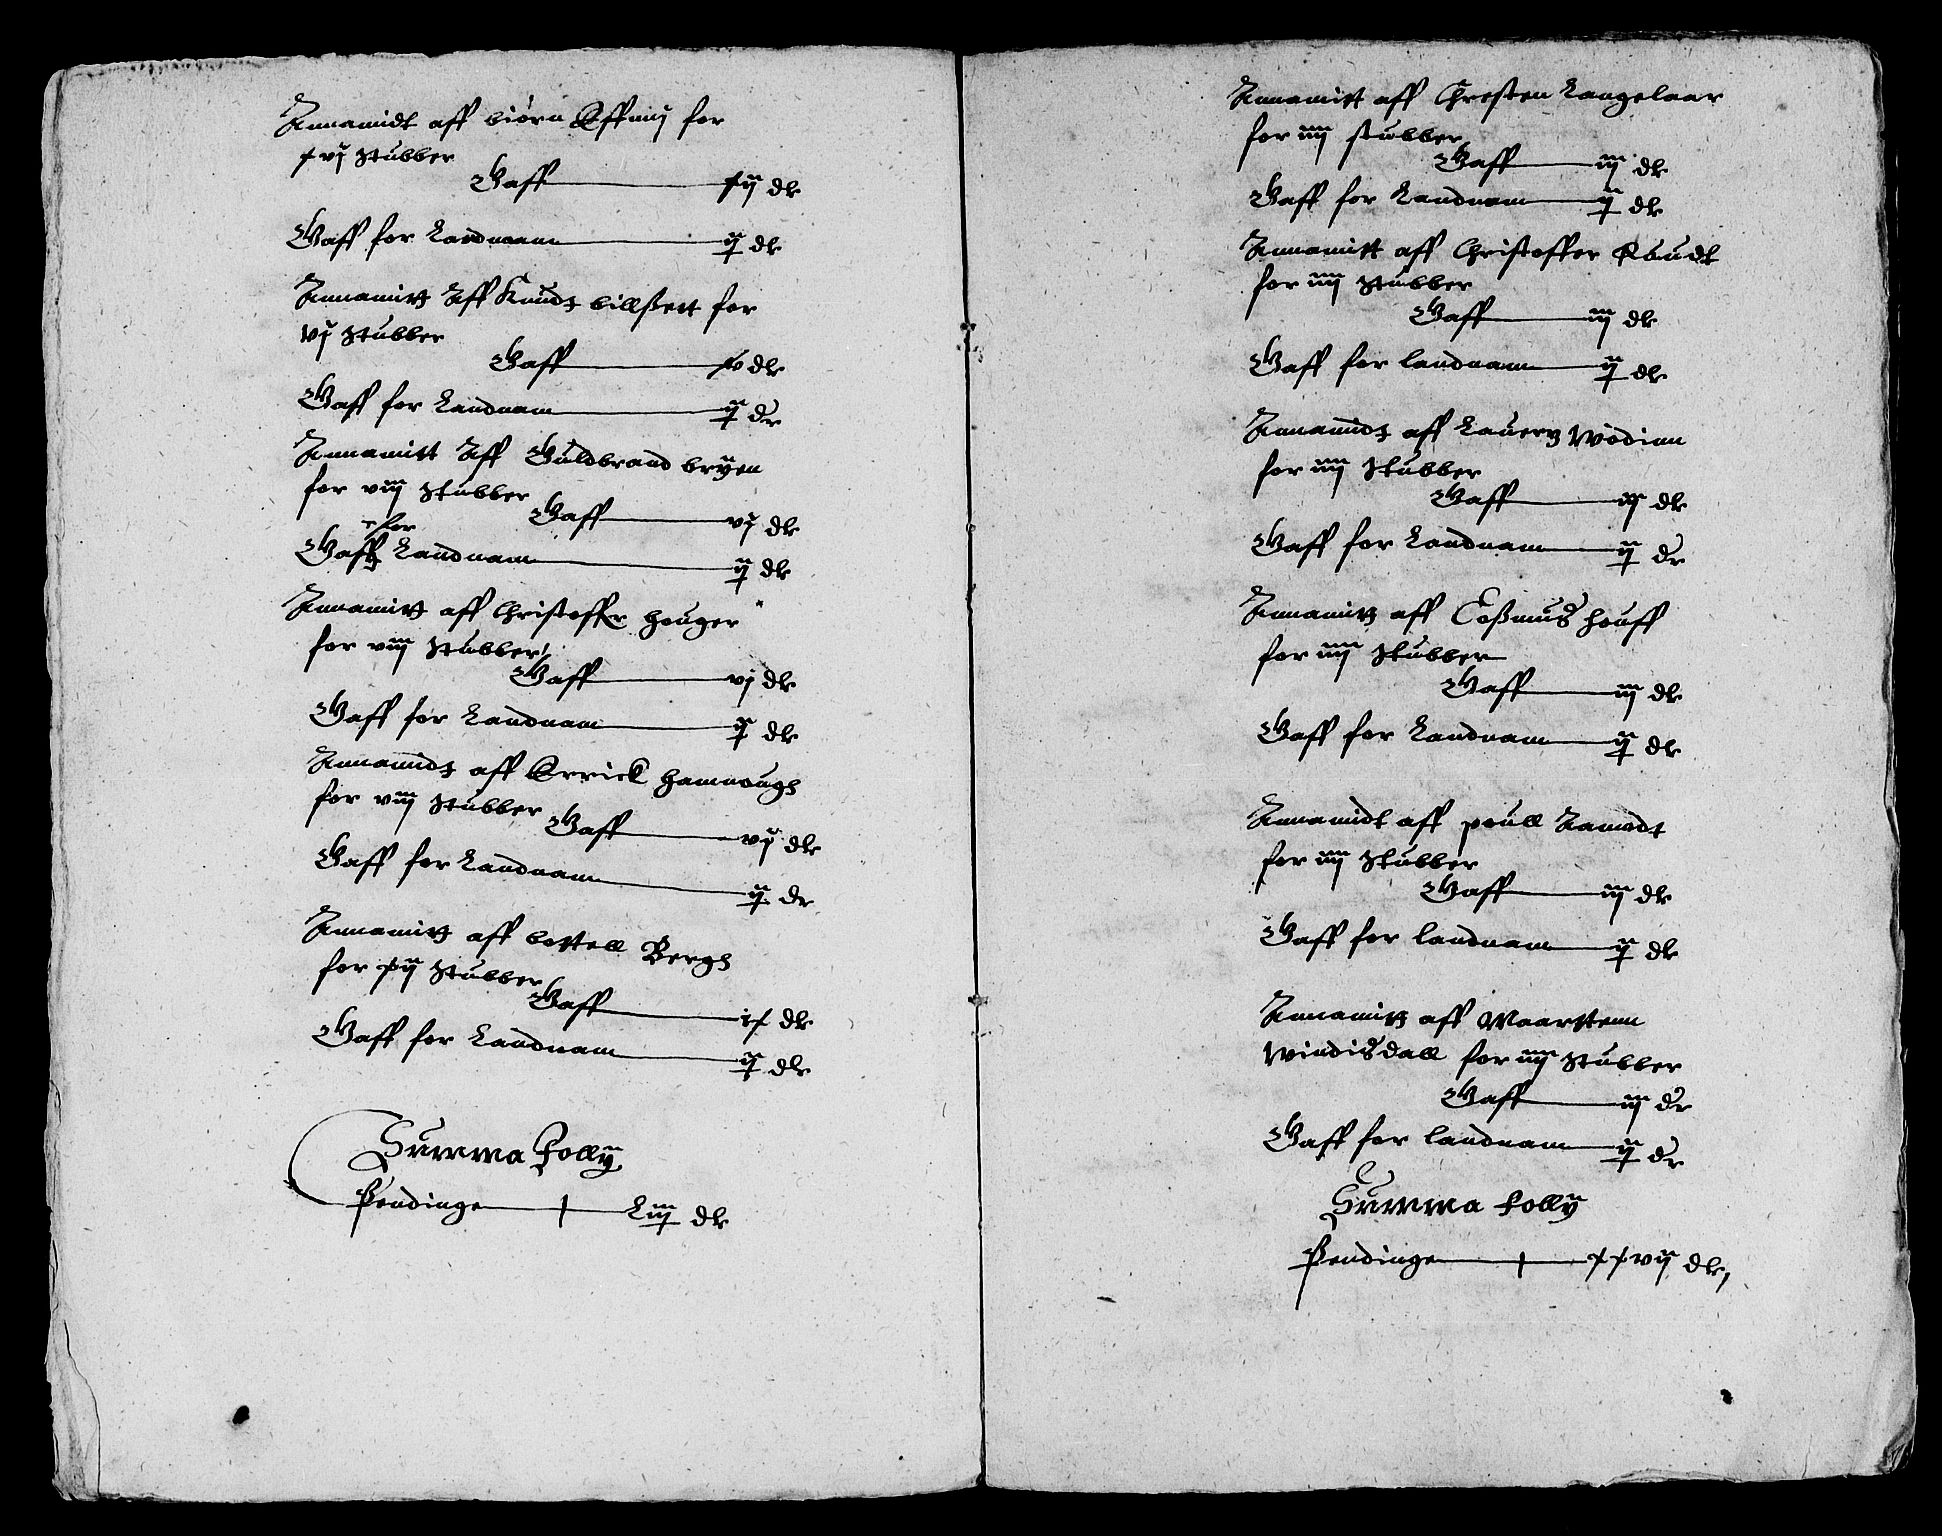 Annamidt aff biörn Effnni for
xvj Stubber
Gaff xij dlr
Gaff for Landnam ij dlr
Annamitt Aff Knudt billßett for
vj Stubber
Gaff v dlr
Gaff for Landnam ij dr
Annamitt Aff Guldbrand bryen
for viij Stubber
Gaff vj dlr
for
Gaff Landnam ij dlr
Annamitt aff Christoffer Houger
for viij Stubber
Gaff vj dlr
Gaff for Landnam ij dlr
Annamidt aff Errick
for viij Stubber
Gaff vij dlr
Gaff for Landnam ij dr
Annamitt aff bottell Bergh
for xij Stubber
Gaff ix dlr
Gaff for Landnam ij dlr
Summa Folly
Pendinge Liij dlr
Annamitt aff Chresten Langelaar
for iiij stubber
Gaff iij dlr
Gaff for Landnam ij dlr
Annamitt aff Christoffer
for iiij Stubber
Gaff iij dlr
Gaff for landnam ij dlr
Annamidt aff Lauery Wodinn
for iiij Stubber
Gaff iij dlr
Gaff for Landnam ij dr
Annamitt aff houff
for iiij Stubber
Gaff iij dlr
Gaff for Landnam ij dlr
Annamidt aff poull Aamodt
for iiij Stubber
Gaff iij dlr
Gaff for landnam ij dlr
Annamitt aff Maarttenn
Windisdall for iiij Stubber
Gaff iij dr
Gaff for landnam ij dr
Summa Folly
Pendinge xxvij dlr